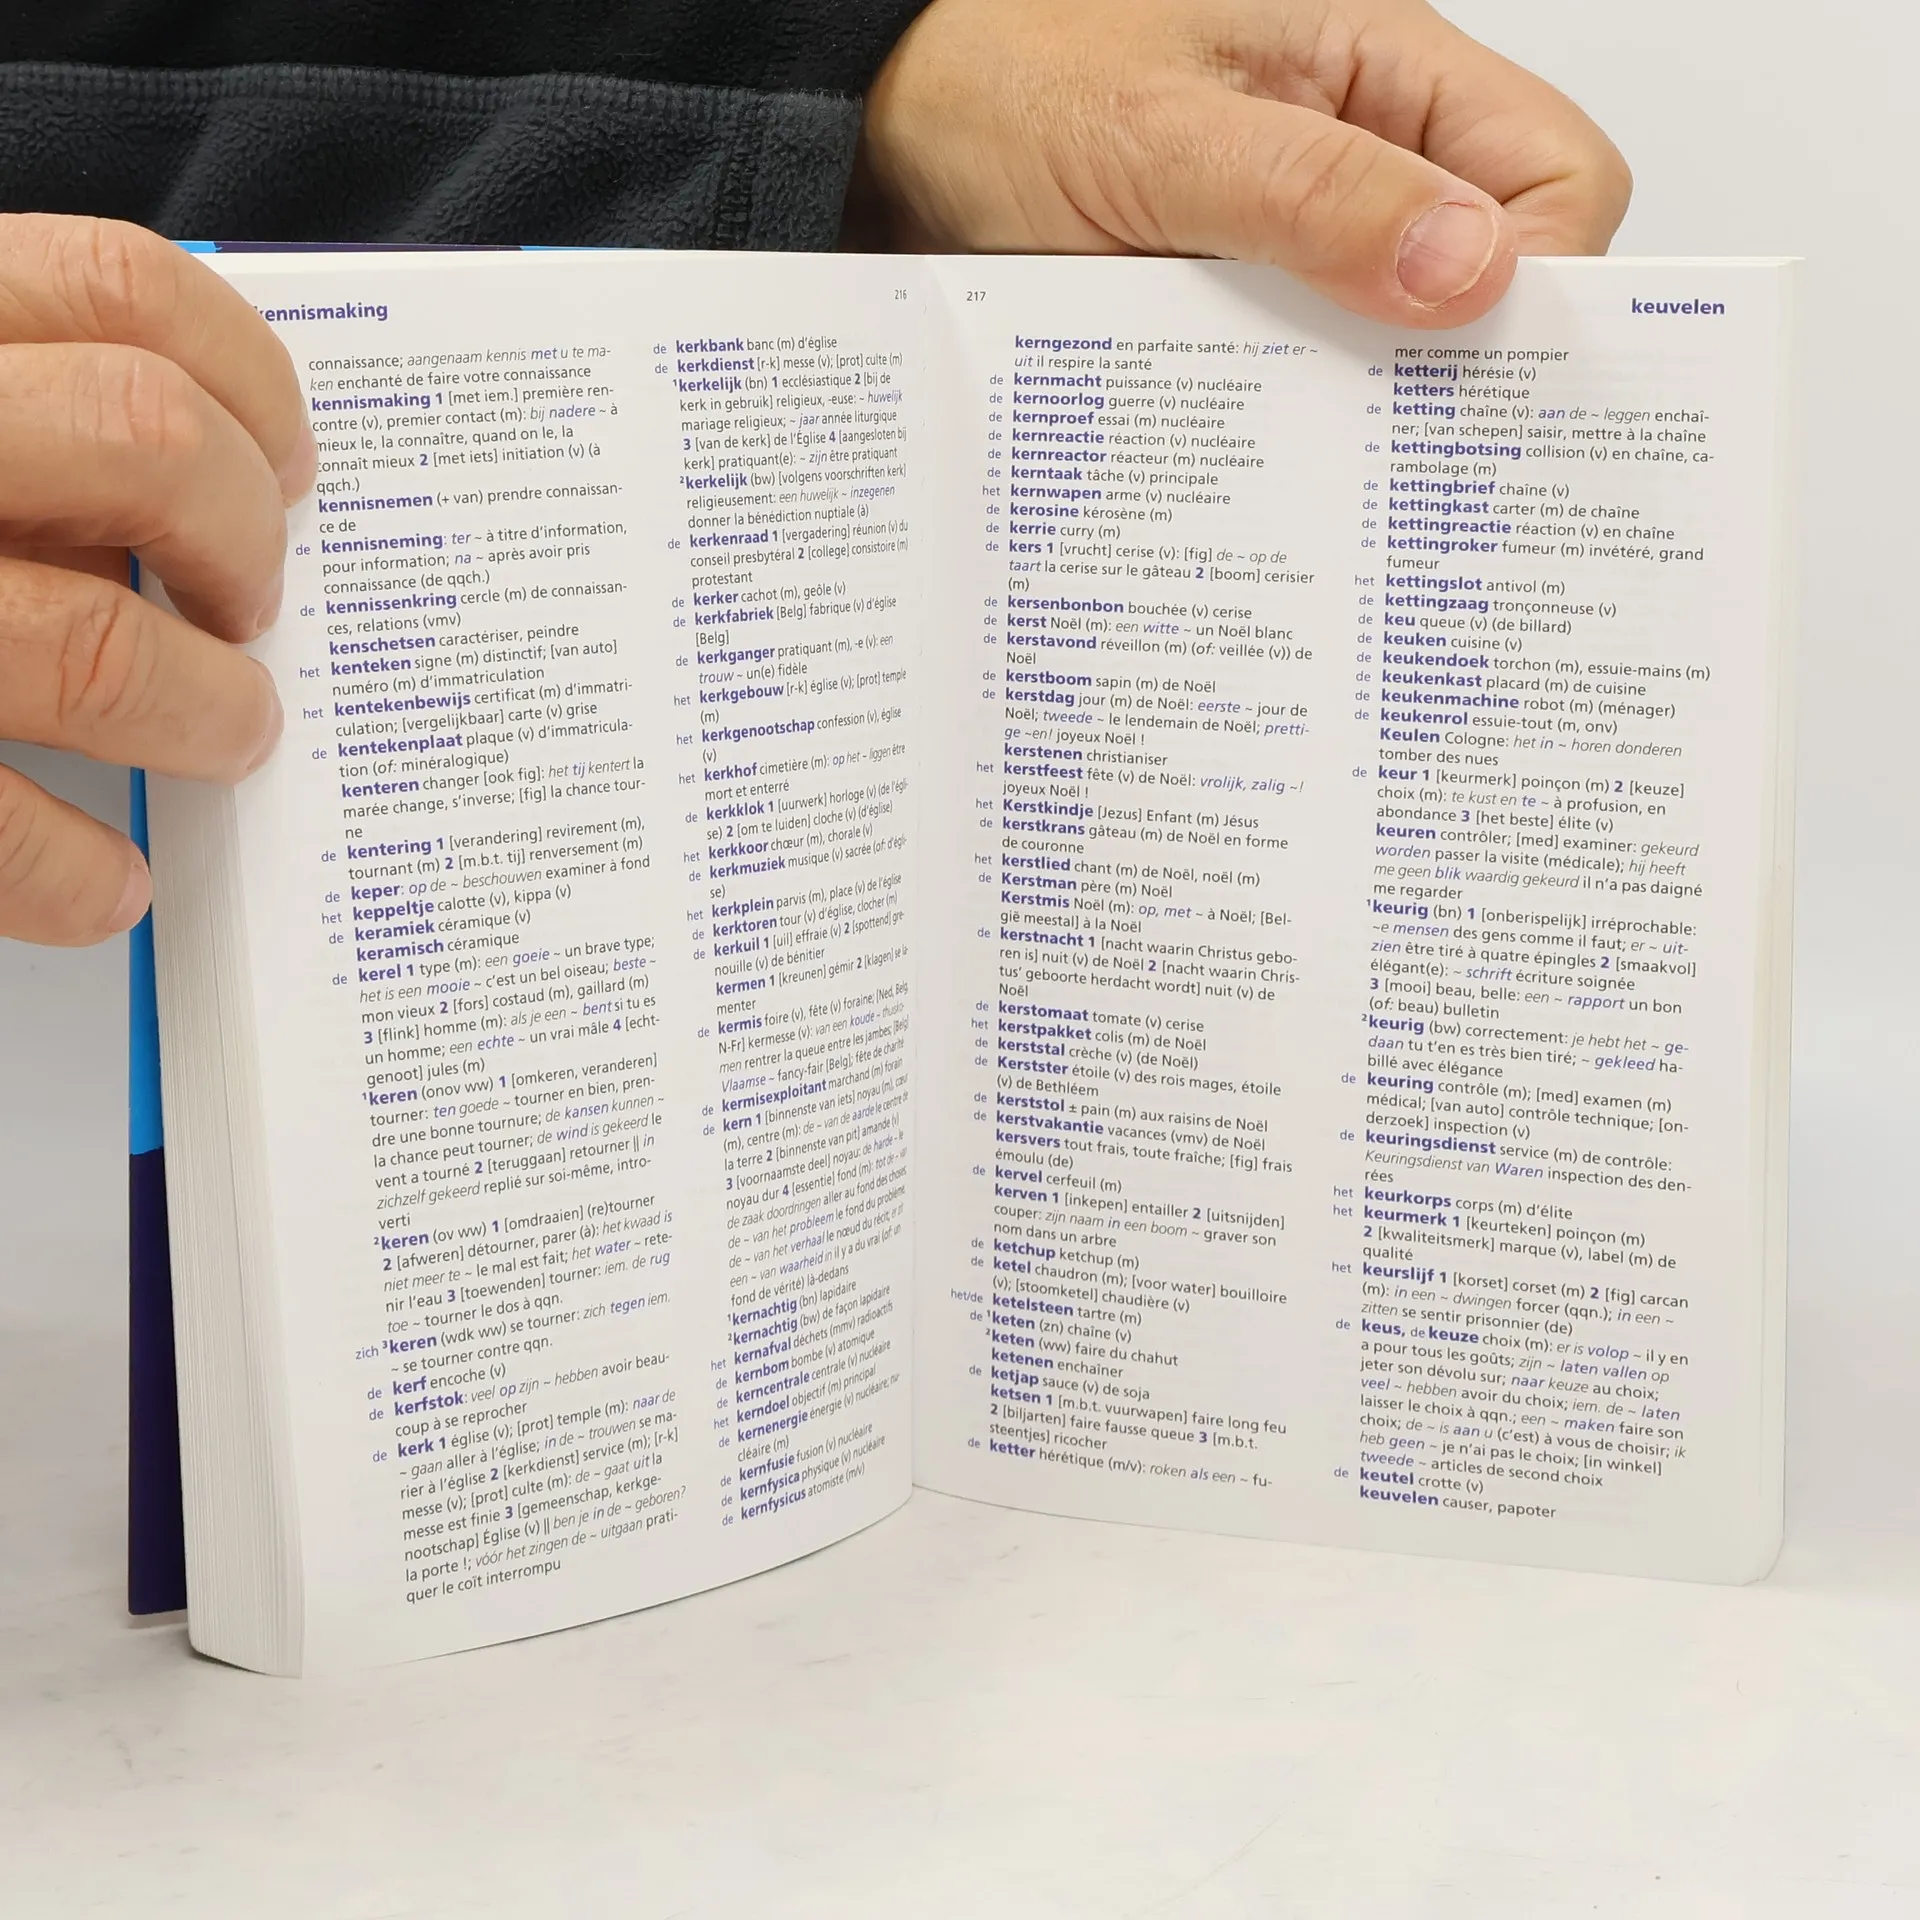 kennismaking
216
connaissance; aangenaam kennis met u te ma-
ken enchanté de faire votre connaissance
kennismaking 1 [met iem.] première ren-
contre (v), premier contact (m): bij nadere ~ à
mieux le, la connaître, quand on le, la
connaît mieux 2 [met iets] initiation (v) (à
qqch.)
kennisnemen (+ van) prendre connaissan-
ce de
de kennisneming: ter ~ à titre d'information,
pour information; na ~ après avoir pris
connaissance (de qqch.)
de kennissenkring cercle (m) de connaissan-
ces, relations (vmv)
kenschetsen caractériser, peindre
het kenteken signe (m) distinctif; [van auto]
numéro (m) d'immatriculation
het kentekenbewijs certificat (m) d'immatri-
culation; [vergelijkbaar] carte (v) grise
de kentekenplaat plaque (v) d'immatricula-
tion (of: minéralogique)
kenteren changer [ook fig]: het tij kentert la
marée change, s'inverse; [fig] la chance tour-
ne
de kentering 1 [verandering] revirement (m),
tournant (m) 2 [m.b.t. tij] renversement (m)
de keper: op de ~ beschouwen examiner à fond
het keppeltje calotte (v), kippa (v)
de keramiek céramique (v)
keramisch céramique
de kerel 1 type (m): een goeie ~ un brave type;
het is een mooie ~ c'est un bel oiseau; beste ~
mon vieux 2 [fors] costaud (m), gaillard (m)
3 [flink] homme (m): als je een ~ bent si tu es
un homme; een echte ~ un vrai mâle 4 [echt-
genoot] jules (m)
¹keren (onov ww) 1 [omkeren, veranderen]
tourner: ten goede ~ tourner en bien, pren-
dre une bonne tournure; de kansen kunnen ~
la chance peut tourner; de wind is gekeerd le
vent a tourné 2 [teruggaan] retourner || in
zichzelf gekeerd replié sur soi-même, intro-
verti
²keren (ov ww) 1 [omdraaien] (re)tourner
2 [afweren] détourner, parer (à): het kwaad is
niet meer te ~ le mal est fait; het water ~ rete-
nir l'eau 3 [toewenden] tourner: iem. de rug
toe ~ tourner le dos à qqn.
zich ³keren (wdk ww) se tourner: zich tegen iem.
~ se tourner contre qqn.
de kerf encoche (v)
de kerfstok: veel op zijn ~ hebben avoir beau-
coup à se reprocher
de kerk 1 église (v); [prot] temple (m): naar de
~ gaan aller à l'église; in de ~ trouwen se ma-
rier à l'église 2 [kerkdienst] service (m); [r-k]
messe (v); [prot] culte (m): de ~ gaat uit la
messe est finie 3 [gemeenschap, kerkge-
nootschap] Église (v) || ben je in de ~ geboren?
la porte !; vóór het zingen de ~ uitgaan prati-
quer le coït interrompu
de kerkbank banc (m) d'église
de kerkdienst [r-k] messe (v); [prot] culte (m)
¹kerkelijk (bn) 1 ecclésiastique 2 [bij de
kerk in gebruik] religieux, -euse: ~ huwelijk
mariage religieux; ~ jaar année liturgique
3 [van de kerk] de l'Église 4 [aangesloten bij
kerk] pratiquant(e): ~ zijn être pratiquant
²kerkelijk (bw) [volgens voorschriften kerk]
religieusement: een huwelijk ~ inzegenen
donner la bénédiction nuptiale (à)
de kerkenraad 1 [vergadering] réunion (v) du
conseil presbytéral 2 [college] consistoire (m)
protestant
de kerker cachot (m), geôle (v)
de kerkfabriek [Belg] fabrique (v) d'église
[Belg]
de kerkganger pratiquant (m), -e (v): een
trouw ~ un(e) fidèle
het kerkgebouw [r-k] église (v); [prot] temple
(m)
het kerkgenootschap confession (v), église
(v)
het kerkhof cimetière (m): op het ~ liggen être
mort et enterré
de kerkklok 1 [uurwerk] horloge (v) (de l'égli-
se) 2 [om te luiden] cloche (v) (d'église)
het kerkkoor chœur (m), chorale (v)
de kerkmuziek musique (v) sacrée (of: d'égli-
se)
het kerkplein parvis (m), place (v) de l'église
de kerktoren tour (v) d'église, clocher (m)
de kerkuil 1 [uil] effraie (v) 2 [spottend] gre-
nouille (v) de bénitier
kermen 1 [kreunen] gémir 2 [klagen] se la-
menter
de kermis foire (v), fête (v) foraine; [Ned, Belg,
N-Fr] kermesse (v): van een koude ~ thuisko-
men rentrer la queue entre les jambes; [Belg]
Vlaamse ~ fancy-fair [Belg]; fête de charité
de kermisexploitant marchand (m) forain
de kern 1 [binnenste van iets] noyau (m), cœur
(m), centre (m): de ~ van de aarde le centre de
la terre 2 [binnenste van pit] amande (v)
3 [voornaamste deel] noyau: de harde ~ le
noyau dur 4 [essentie] fond (m): tot de ~ van
de zaak doordringen aller au fond des choses;
de ~ van het probleem le fond du problème;
de ~ van het verhaal le nœud du récit; er zit
een ~ van waarheid in il y a du vrai (of: un
fond de vérité) là-dedans
¹kernachtig (bn) lapidaire
²kernachtig (bw) de façon lapidaire
het kernafval déchets (mmv) radioactifs
de kernbom bombe (v) atomique
de kerncentrale centrale (v) nucléaire
het kerndoel objectif (m) principal
de kernenergie énergie (v) nucléaire; nu-
cléaire (m)
de kernfusie fusion (v) nucléaire
de kernfysica physique (v) nucléaire
de kernfysicus atomiste (m/v)
217
keuvelen
kerngezond en parfaite santé: hij ziet er ~
uit il respire la santé
de kernmacht puissance (v) nucléaire
de kernoorlog guerre (v) nucléaire
de kernproef essai (m) nucléaire
de kernreactie réaction (v) nucléaire
de kernreactor réacteur (m) nucléaire
de kerntaak tâche (v) principale
het kernwapen arme (v) nucléaire
de kerosine kérosène (m)
de kerrie curry (m)
de kers 1 [vrucht] cerise (v): [fig] de ~ op de
taart la cerise sur le gâteau 2 [boom] cerisier
(m)
de kersenbonbon bouchée (v) cerise
de kerst Noël (m): een witte ~ un Noël blanc
de kerstavond réveillon (m) (of: veillée (v)) de
Noël
de kerstboom sapin (m) de Noël
de kerstdag jour (m) de Noël: eerste ~ jour de
Noël; tweede ~ le lendemain de Noël; pretti-
ge ~en! joyeux Noël !
kerstenen christianiser
het kerstfeest fête (v) de Noël: vrolijk, zalig ~!
joyeux Noël !
het Kerstkindje [Jezus] Enfant (m) Jésus
de kerstkrans gâteau (m) de Noël en forme
de couronne
het kerstlied chant (m) de Noël, noël (m)
de Kerstman père (m) Noël
Kerstmis Noël (m): op, met ~ à Noël; [Bel-
gië meestal] à la Noël
de kerstnacht 1 [nacht waarin Christus gebo-
ren is] nuit (v) de Noël 2 [nacht waarin Chris-
tus' geboorte herdacht wordt] nuit (v) de
Noël
de kerstomaat tomate (v) cerise
het kerstpakket colis (m) de Noël
de kerststal crèche (v) (de Noël)
de Kerstster étoile (v) des rois mages, étoile
(v) de Bethléem
de kerststol ± pain (m) aux raisins de Noël
de kerstvakantie vacances (vmv) de Noël
kersvers tout frais, toute fraîche; [fig] frais
émoulu (de)
de kervel cerfeuil (m)
kerven 1 [inkepen] entailler 2 [uitsnijden]
couper: zijn naam in een boom ~ graver son
nom dans un arbre
de ketchup ketchup (m)
de ketel chaudron (m); [voor water] bouilloire
(v); [stoomketel] chaudière (v)
het/de ketelsteen tartre (m)
de ¹keten (zn) chaîne (v)
²keten (ww) faire du chahut
ketenen enchaîner
de ketjap sauce (v) de soja
ketsen 1 [m.b.t. vuurwapen] faire long feu
2 [biljarten] faire fausse queue 3 [m.b.t.
steentjes] ricocher
de ketter hérétique (m/v): roken als een ~ fu-
mer comme un pompier
de ketterij hérésie (v)
ketters hérétique
de ketting chaîne (v): aan de ~ leggen enchaî-
ner; [van schepen] saisir, mettre à la chaîne
de kettingbotsing collision (v) en chaîne, ca-
rambolage (m)
de kettingbrief chaîne (v)
de kettingkast carter (m) de chaîne
de kettingreactie réaction (v) en chaîne
de kettingroker fumeur (m) invétéré, grand
fumeur
het kettingslot antivol (m)
de kettingzaag tronçonneuse (v)
de keu queue (v) (de billard)
de keuken cuisine (v)
de keukendoek torchon (m), essuie-mains (m)
de keukenkast placard (m) de cuisine
de keukenmachine robot (m) (ménager)
de keukenrol essuie-tout (m, onv)
Keulen Cologne: het in ~ horen donderen
tomber des nues
de keur 1 [keurmerk] poinçon (m) 2 [keuze]
choix (m): te kust en te ~ à profusion, en
abondance 3 [het beste] élite (v)
keuren contrôler; [med] examiner: gekeurd
worden passer la visite (médicale); hij heeft
me geen blik waardig gekeurd il n'a pas daigné
me regarder
¹keurig (bn) 1 [onberispelijk] irréprochable:
~e mensen des gens comme il faut; er ~ uit-
zien être tiré à quatre épingles 2 [smaakvol]
élégant(e): ~ schrift écriture soignée
3 [mooi] beau, belle: een ~ rapport un bon
(of: beau) bulletin
²keurig (bw) correctement: je hebt het ~ ge-
daan tu t'en es très bien tiré; ~ gekleed ha-
billé avec élégance
de keuring contrôle (m); [med] examen (m)
médical; [van auto] contrôle technique; [on-
derzoek] inspection (v)
de keuringsdienst service (m) de contrôle:
Keuringsdienst van Waren inspection des den-
rées
het keurkorps corps (m) d'élite
het keurmerk 1 [keurteken] poinçon (m)
2 [kwaliteitsmerk] marque (v), label (m) de
qualité
het keurslijf 1 [korset] corset (m) 2 [fig] carcan
(m): in een ~ dwingen forcer (qqn.); in een ~
zitten se sentir prisonnier (de)
de keus, de keuze choix (m): er is volop ~ il y en
a pour tous les goûts; zijn ~ laten vallen op
jeter son dévolu sur; naar keuze au choix;
veel ~ hebben avoir du choix; iem. de ~ laten
laisser le choix à qqn.; een ~ maken faire son
choix; de ~ is aan u (c'est) à vous de choisir; ik
heb geen ~ je n'ai pas le choix; [in winkel]
tweede ~ articles de second choix
de keutel crotte (v)
keuvelen causer, papoter